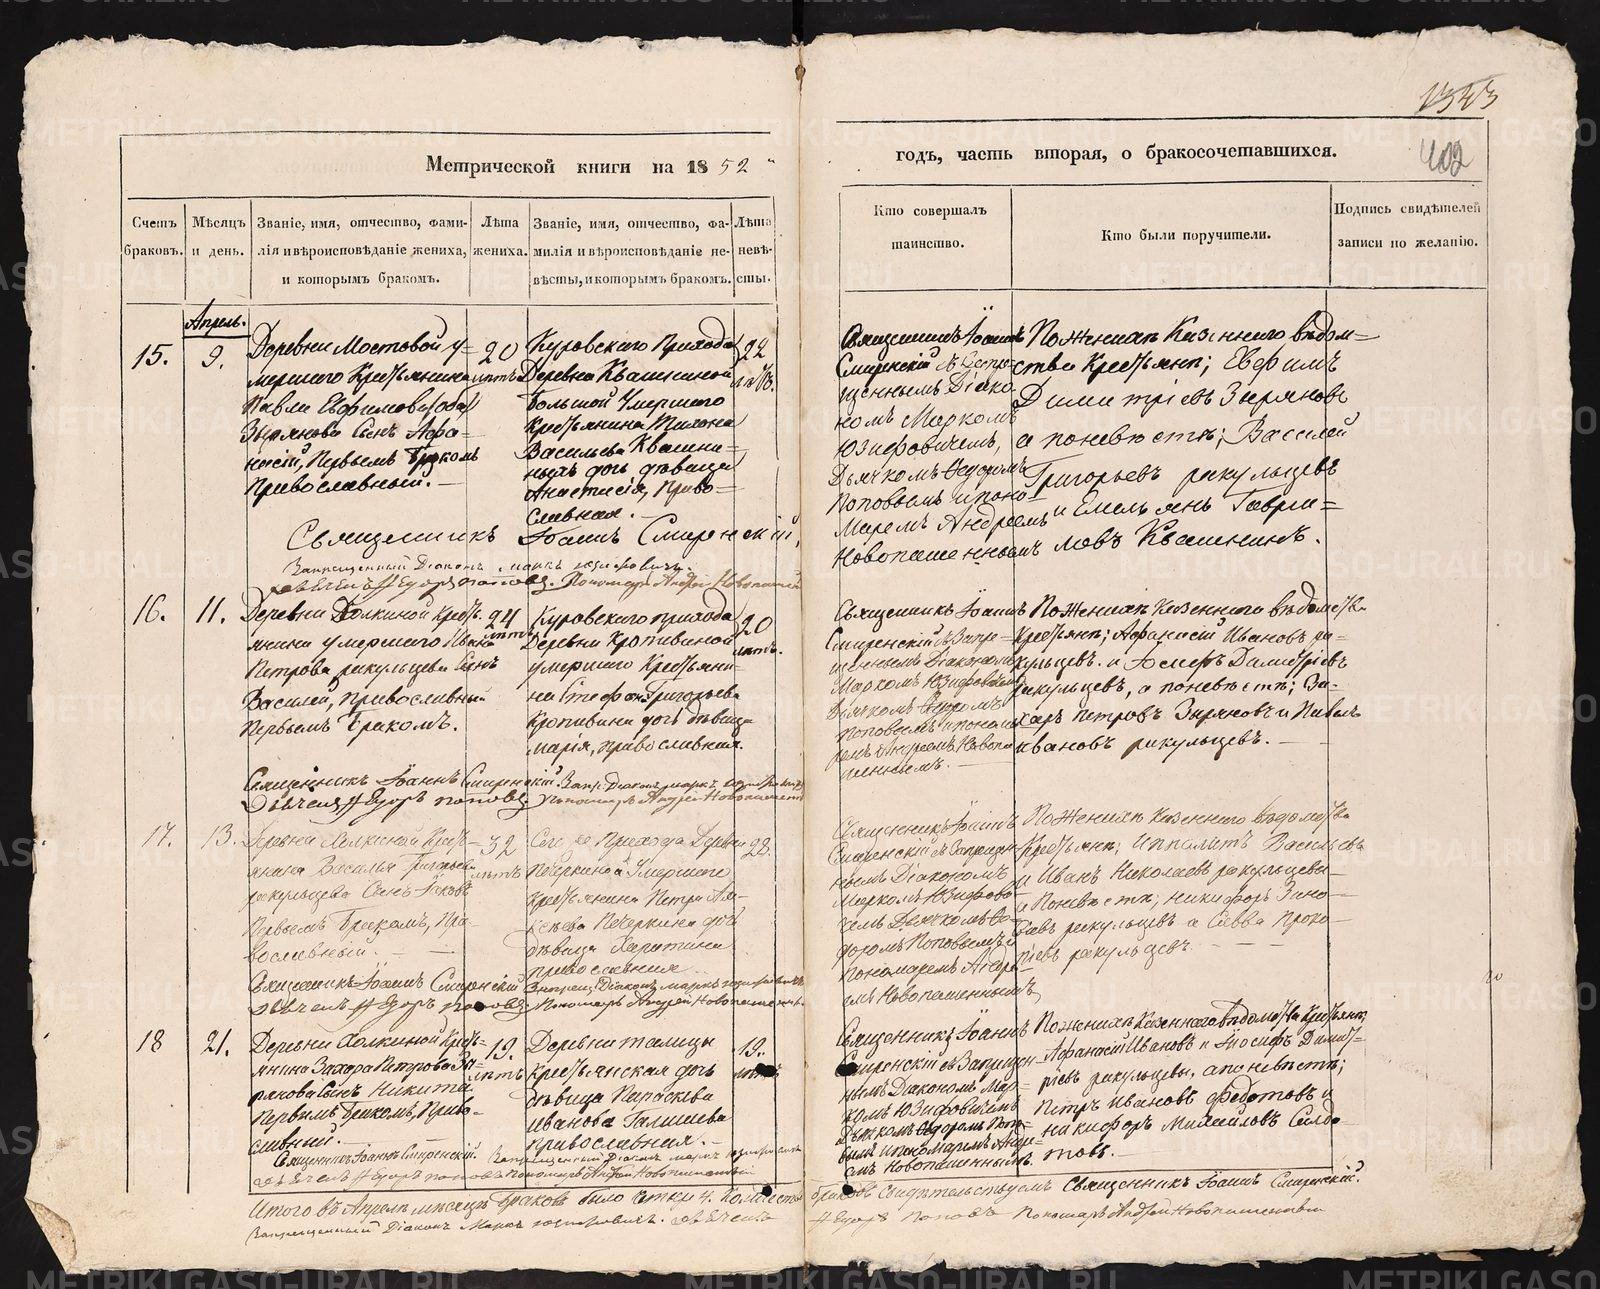 1343
402
Метрической книги на 1852
годъ, часть вторая, о бракосочетавшихся.
Счетъ браковъ.
Мѣсяцъ и день.
Званіе, имя, отчество, фами-
лія и вѣроисповѣданіе жениха,
и которымъ бракомъ.
Лѣта
жениха.
Званіе, имя, отчество, фа-
милія и вѣроисповѣданіе не-
вѣсты, и которымъ бракомъ.
Лѣта
невѣ-
сты.
Кто совершалъ
таинство.
Кто были поручители.
Подпись свидѣтелей
записи по желанію.
Апрель.
15.
9.
Деревни Мостовой у-
мершаго Крестьянина
Павла Евфимова
Зырянова Сынъ Афа-
насій, Первымъ бракомъ
Православный.
20
лѣтъ
Куровскаго Прихода
Деревни Квашниной
большой Умершаго
крестьянина Тихона
Васильева Квашни-
ныхъ дочь дѣвица
Анастасія, Право-
славная.
22
Священникъ Іоаннъ
Смиренскій съ Запре-
щеннымъ Діако-
номъ Маркомъ
Юзифовичемъ,
Дьячкомъ Ѳедоромъ
Поповымъ и поно-
маремъ Андреемъ
Новопашеннымъ
По женихѣ Казеннаго вѣдом-
ства Крестьяне; Евфимъ
Димитріевъ Зыряновъ
а по невѣстѣ; Василей
Григорьевъ ракульцевъ
и Емельянъ Гаври-
ловъ Квашнинъ.
Священникъ Іоаннъ Смиренскій,
Запрещенный Діаконъ Маркъ Юзифовичь.
Дьячекъ Егоръ Поповъ. Пономарь Андрей Новопашенный
16.
11.
Деревни Холкиной Крест-
янина умершаго Ивана
Петрова ракульцева Сынъ
Василей, православный
Первымъ бракомъ.
24
лѣтъ
Куровскаго прихода
Деревни Кропивиной
умершаго Крестьяни-
на Стефана Григорьева
Кропивина дочь дѣвица
Марія, православная.
20
лѣтъ.
Священникъ Іоаннъ
Смиренскій съ Запре-
щеннымъ Діакономъ
Маркомъ Юзифовичемъ
Дьячкомъ Ѳедоромъ
Поповымъ и понома-
ремъ Андреемъ Новопа-
шеннымъ.
По женихѣ Казеннаго вѣдомства
Крестьяне; Афанасій Ивановъ ра-
кульцевъ. и Іосифъ Димитріевъ
ракульцевъ, а по невѣстѣ; За-
харъ Петровъ Зыряновъ и Павелъ
Ивановъ ракульцевъ.
Священникъ Іоаннъ Смиренскій. Запр. Діаконъ Маркъ Юзифовичь
Дьячекъ Егоръ Поповъ Пономарь Андрей Новопашенный
17.
13.
Деревни Холкиной Крест-
янина Василья Григорьева
ракульцева Сынъ Іаковъ
Первымъ бракомъ, Пра-
вославный.
32
лѣтъ
Сего же Прихода Деревни
Печеркиной Умершаго
крестьянина Петра Ал-
ексѣева Печеркина дочь
дѣвица Харитина
православная
Священникъ Іоаннъ
Смиренскій съ Запрещен-
нымъ Діакономъ
Маркомъ Юзифови-
чемъ Дьячкомъ Ѳе-
доромъ Поповымъ и
пономаремъ Андре-
емъ Новопашеннымъ
По женихѣ Казеннаго вѣдомства
Крестьяне; Ипполитъ Васильевъ
и Иванъ Николаевъ ракульцевы
а По невѣстѣ; Никифоръ Зино-
вьевъ ракульцевъ а Савва Проко-
піевъ ракульцевъ.
Священникъ Іоаннъ Смиренскій Запрещ. Діаконъ Маркъ Юзифовичь
Дьячекъ Егоръ Поповъ Пономарь Андрей Новопашенный
18
21.
Деревни Холкиной Крест-
янина Захара Петрова Зы-
рянова Сынъ Никита
Первымъ бракомъ, Право-
славный.
19.
лѣтъ
Деревни талицы
крестьянская дочь
дѣвица Параскева
Иванова Галишева
православная.
19.
лѣтъ
Священникъ Іоаннъ
Смиренскій съ Запрещен-
нымъ Діакономъ Мар-
комъ Юзифовичемъ
Дьячкомъ Ѳедоромъ Попо-
вымъ и пономаремъ Андре-
емъ Новопашеннымъ.
По женихѣ Казеннаго вѣдомства Крестьяне,
Афанасій Ивановъ и Іосифъ Димит-
ріевъ ракульцевы, а по невѣстѣ;
Петръ Ивановъ Федотовъ и
Никифоръ Михайловъ Солдо-
товъ.
Священникъ Іоаннъ Смиренскій. Запрещенный Діаконъ Маркъ Юзифовичь
Дьячекъ Егоръ Поповъ Пономарь Андрей Новопашенный
Итого въ Апрелѣ мѣсяцѣ браковъ было четыре 4.
браковъ Свидѣтельствуемъ Священникъ Іоаннъ Смиренскій.
Запрещенный Діаконъ Маркъ Юзифовичь. Дьячекъ
Егоръ Поповъ Пономарь Андрей Новопашенный
METRIKI.GASO-URAL.RU